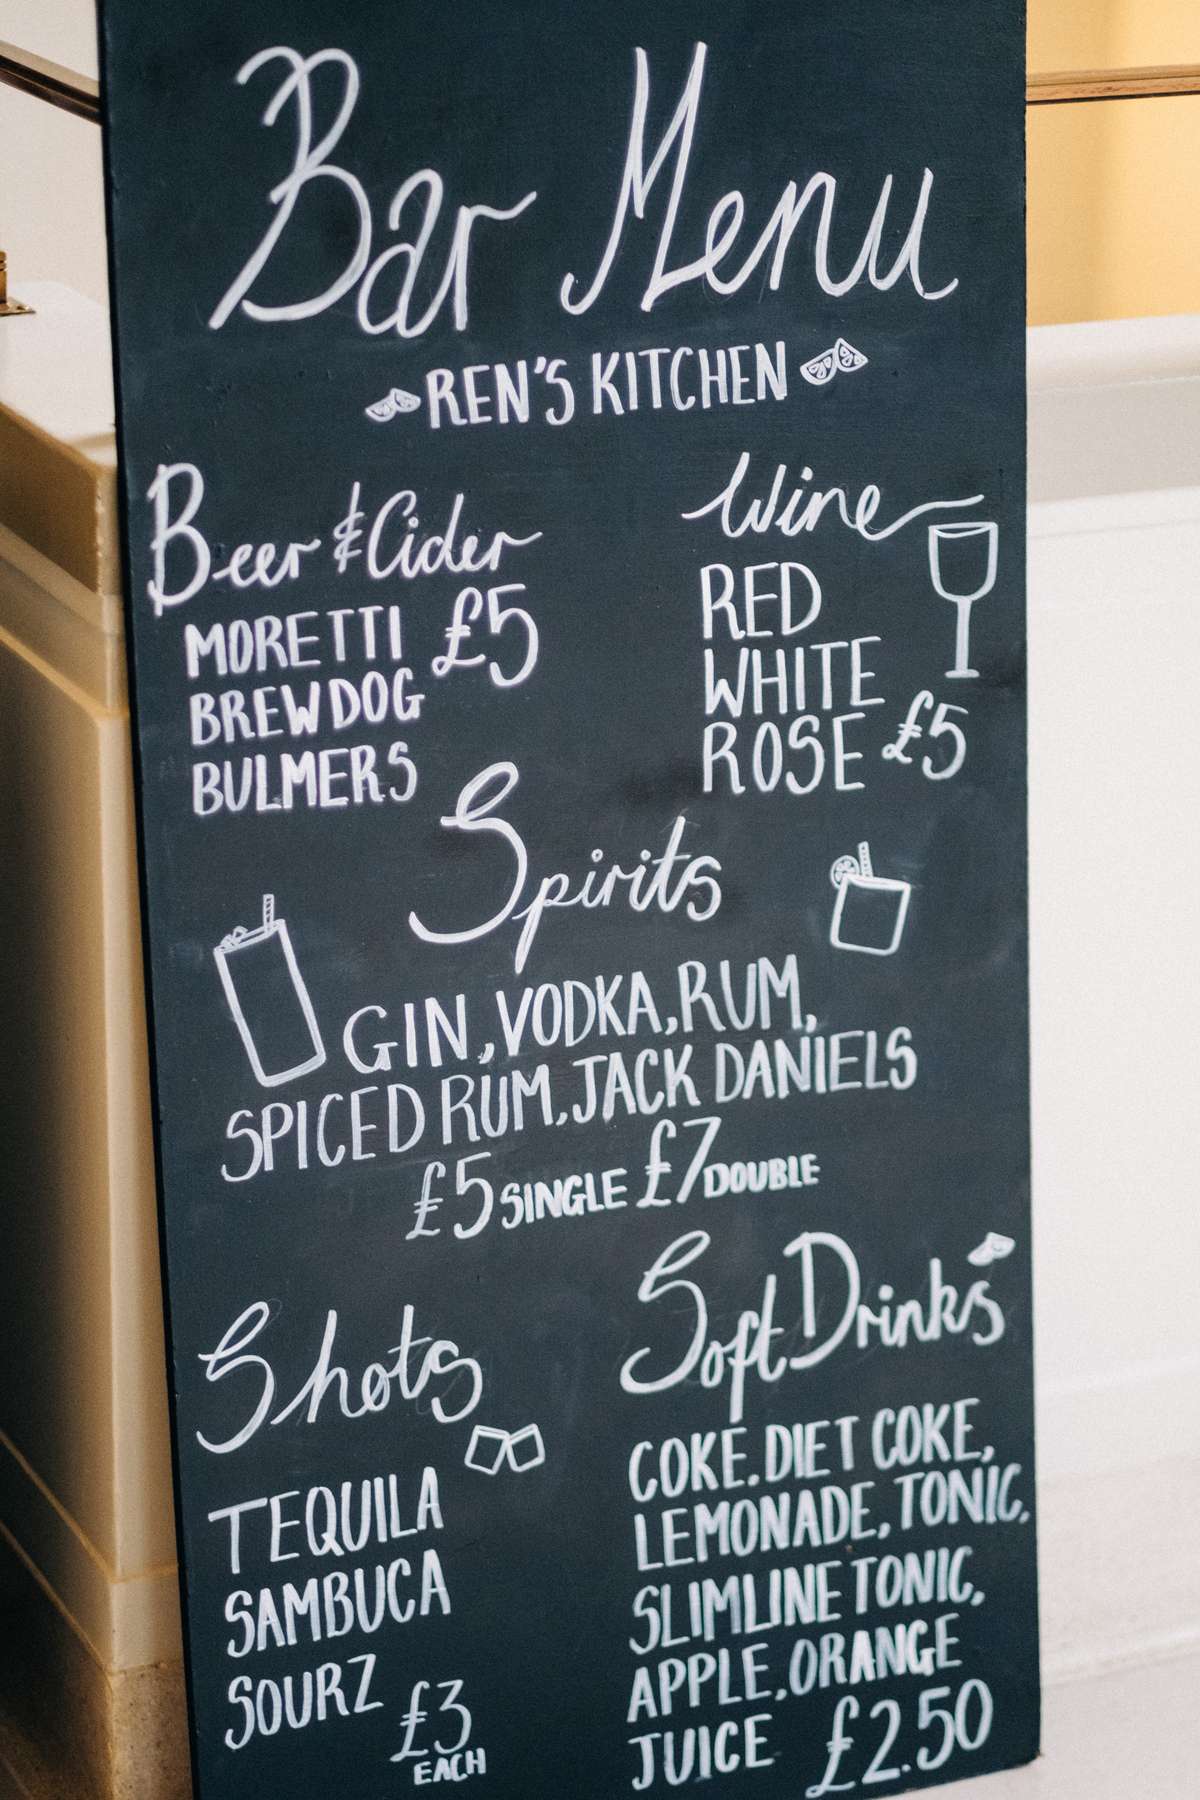 Bar Menu
REN'S KITCHEN
Beer & Cider
MORETTI £5
BREWDOG
BULMERS
Wine
RED
WHITE
ROSE £5
Spirits
GIN, VODKA, RUM,
SPICED RUM, JACK DANIELS
£5 SINGLE £7 DOUBLE
Shots
TEQUILA
SAMBUCA
SOURZ
£3
EACH
Soft Drinks
COKE. DIET COKE,
LEMONADE, TONIC,
SLIMLINE TONIC,
APPLE, ORANGE
JUICE £2.50